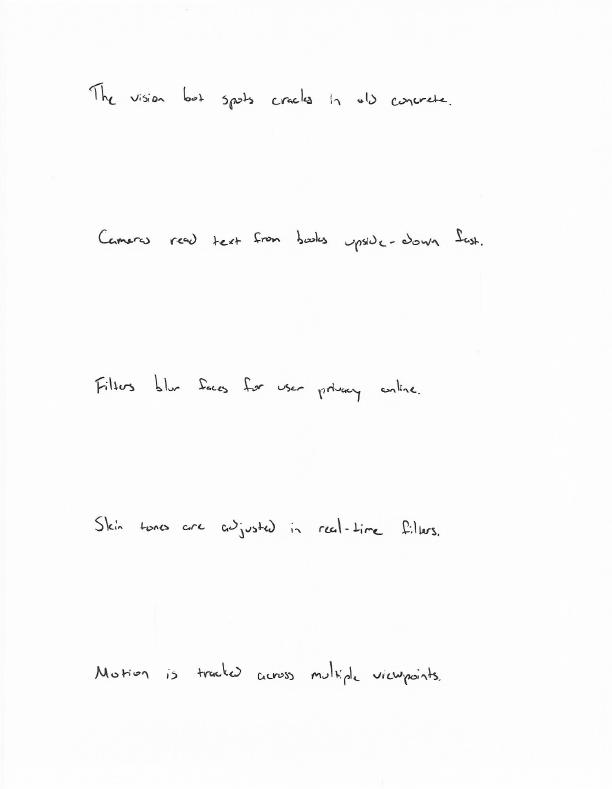 The vision bot spots cracks in old concrete.
Cameras read text from books upside-down fast.
Filters blur faces for user privacy online.
Skin tones are adjusted in real-time filters.
Motion is tracked across multiple viewpoints.